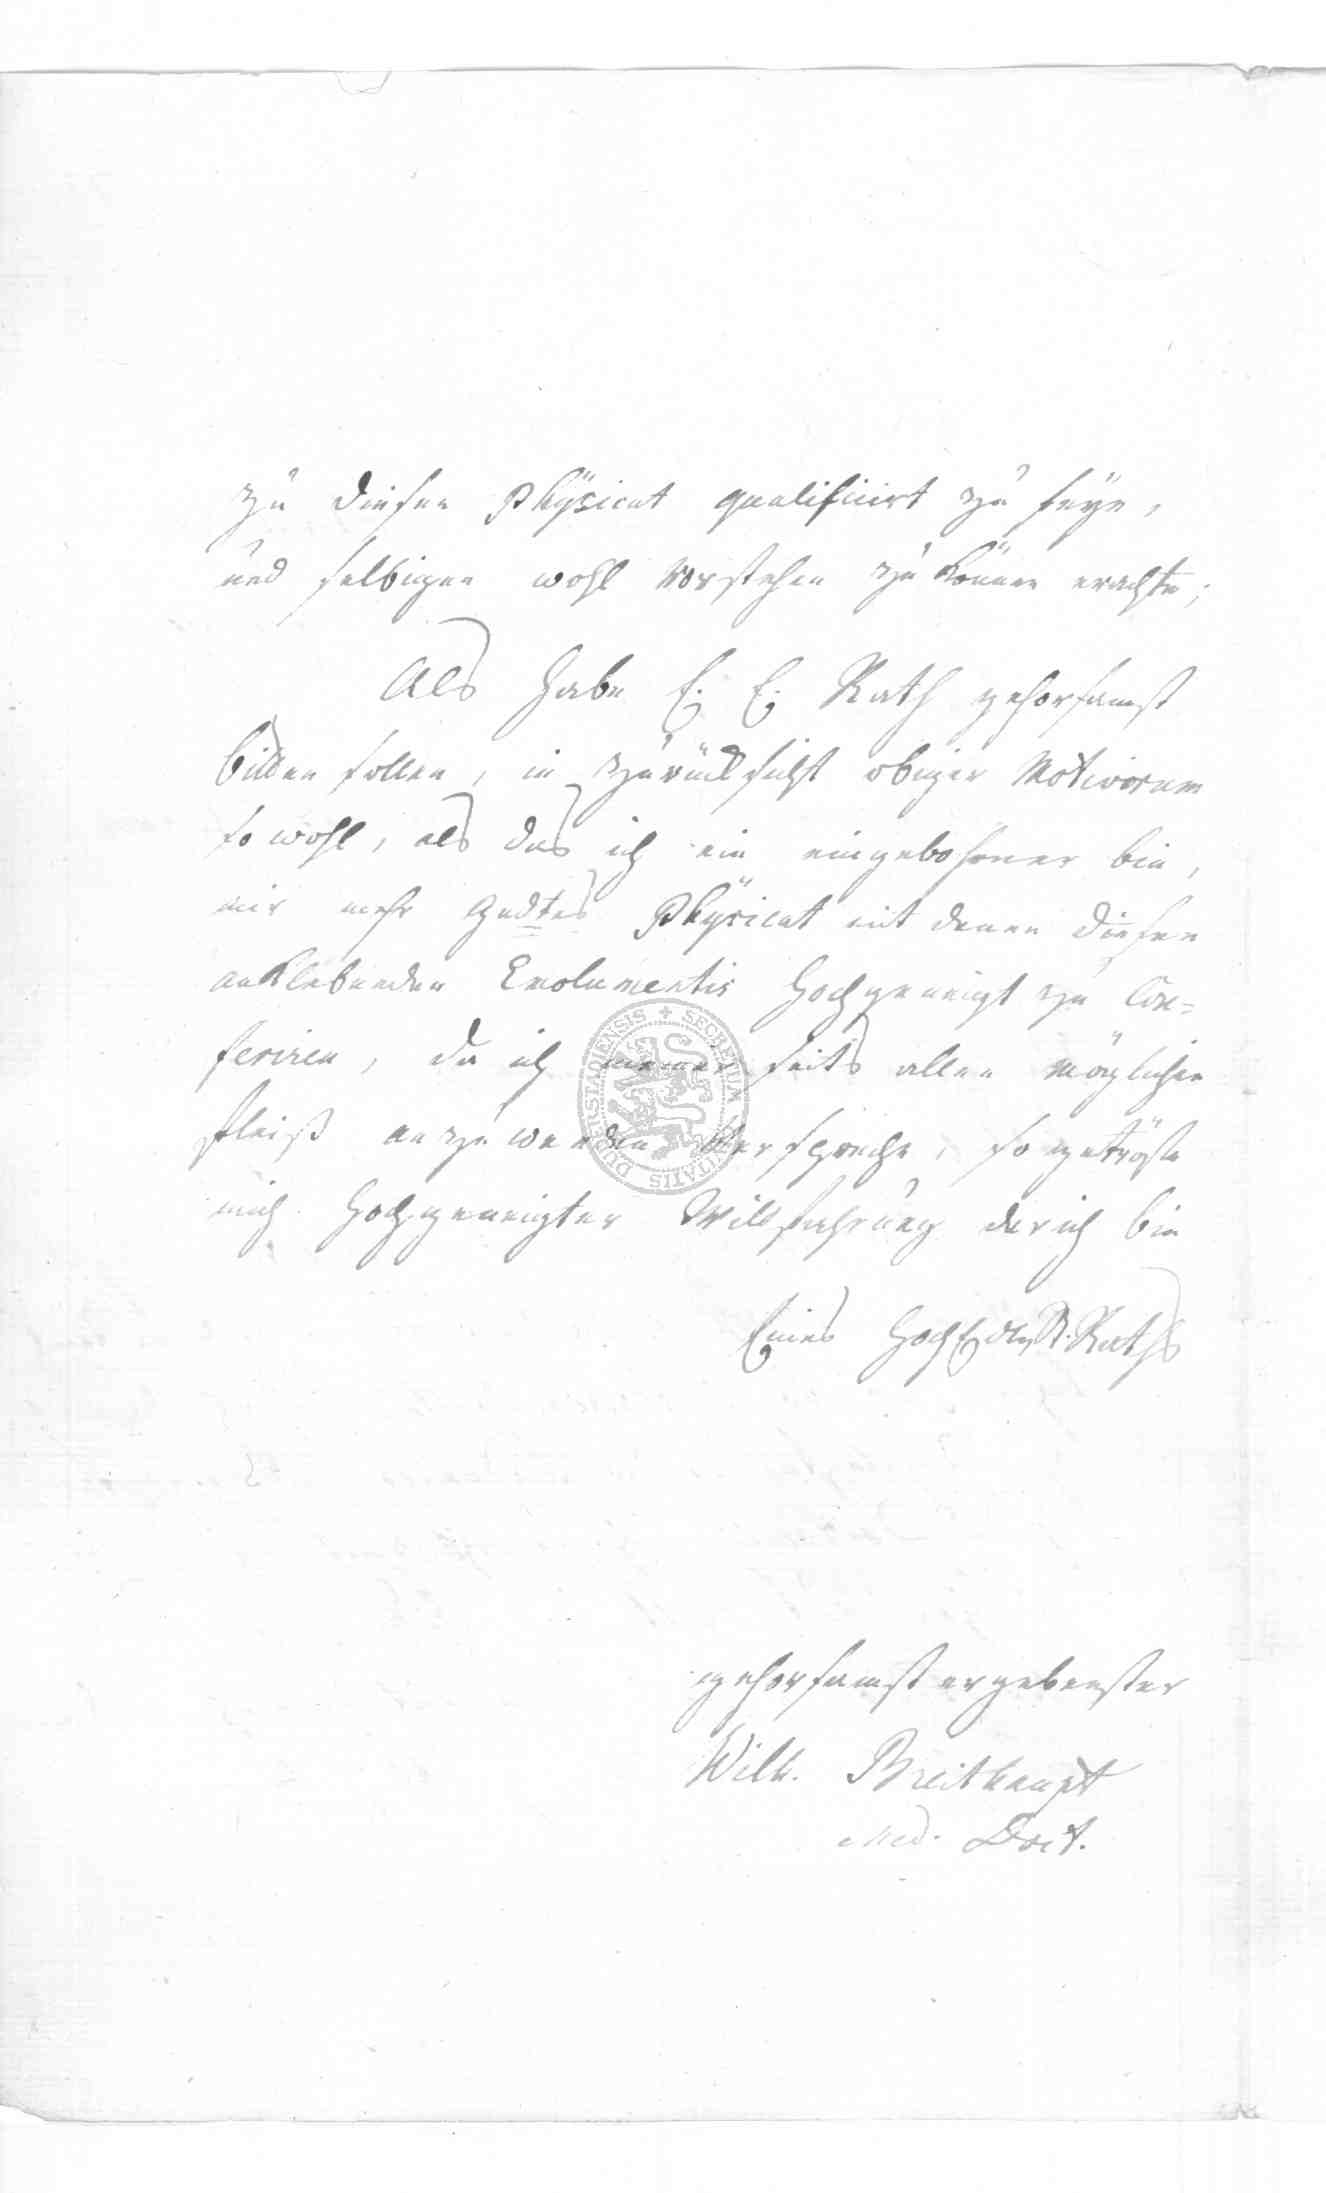 zu diesen Physicat qualificirt zu seyn,
und selbigen wohl vorstehen zu können erachte;
Als habe E. E. Rath gehorsamst
bitten sollen, in zurücksicht obiger Motivorum
so wohl, als das ich ein eingebohrner bin,
mir mehr gedtes Physicat mit denen diesen
anklebenden Emolumentis hochgeneigt zu Con=
feriren, da ich meiner seits allen möglichen
fleiß anzuwenden verspreche, so getröste
mich hochgeneigter Willfahrung der ich bin
Eines HochEdlen Raths
gehorsamst ergebenster
Wilh. Breithaupt
Med. Doct.
SECRETUM CIVITATIS DUDERSTADIENSIS